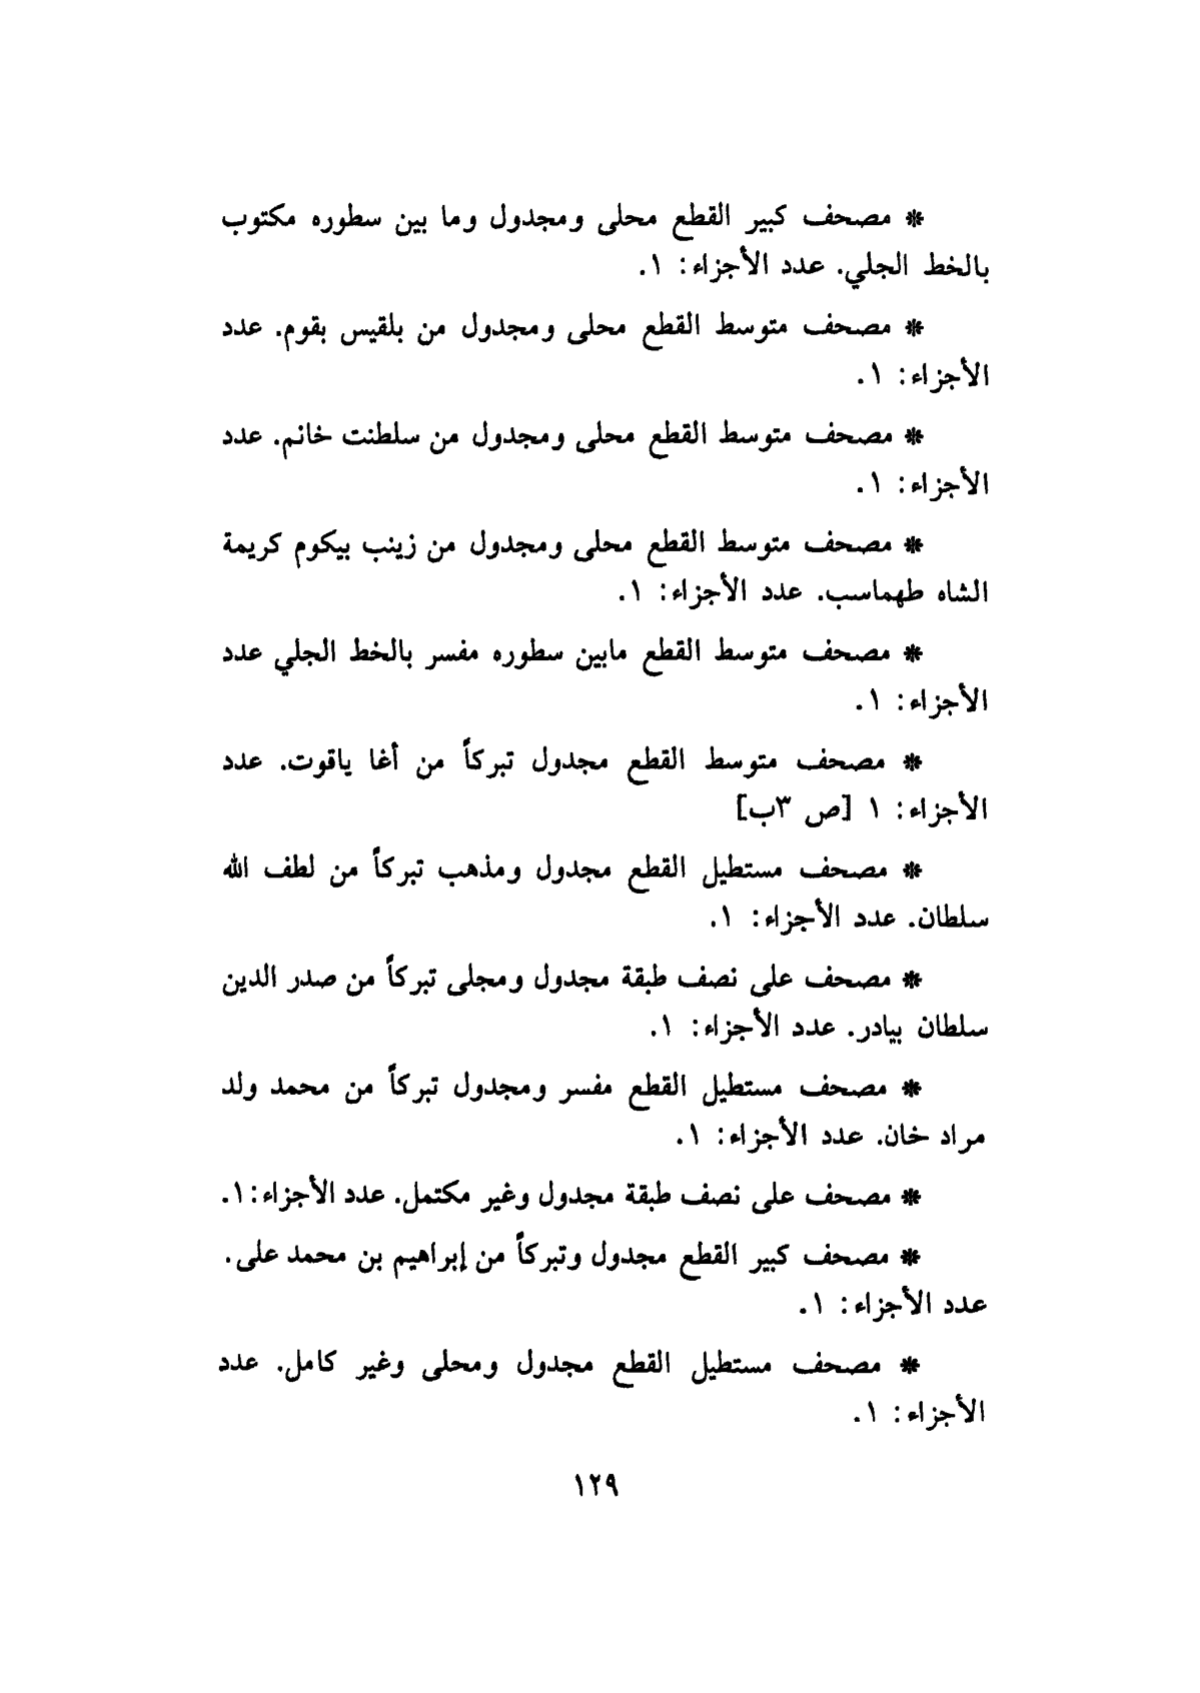 ❊ مصحف كبير القطع محلى ومجدول وما بين سطوره مكتوب
بالخط الجلي. عدد الأجزاء: ١.
❊ مصحف متوسط القطع محلى ومجدول من بلقيس بقوم. عدد
الأجزاء: ١.
❊ مصحف متوسط القطع محلى ومجدول من سلطنت خانم. عدد
الأجزاء: ١.
❊ مصحف متوسط القطع محلى ومجدول من زينب بيكوم كريمة
الشاه طهماسب. عدد الأجزاء: ١.
❊ مصحف متوسط القطع مابين سطوره مفسر بالخط الجلي عدد
الأجزاء: ١.
❊ مصحف متوسط القطع مجدول تبركاً من أغا ياقوت. عدد
الأجزاء: ١ [ص ٣ب]
❊ مصحف مستطيل القطع مجدول ومذهب تبركاً من لطف الله
سلطان. عدد الأجزاء: ١.
❊ مصحف على نصف طبقة مجدول ومجلى تبركاً من صدر الدين
سلطان بيادر. عدد الأجزاء: ١.
❊ مصحف مستطيل القطع مفسر ومجدول تبركاً من محمد ولد
مراد خان. عدد الأجزاء: ١.
❊ مصحف على نصف طبقة مجدول وغير مكتمل. عدد الأجزاء: ١.
❊ مصحف كبير القطع مجدول وتبركاً من إبراهيم بن محمد على.
عدد الأجزاء: ١.
❊ مصحف مستطيل القطع مجدول ومحلى وغير كامل. عدد
الأجزاء: ١.
١٢٩